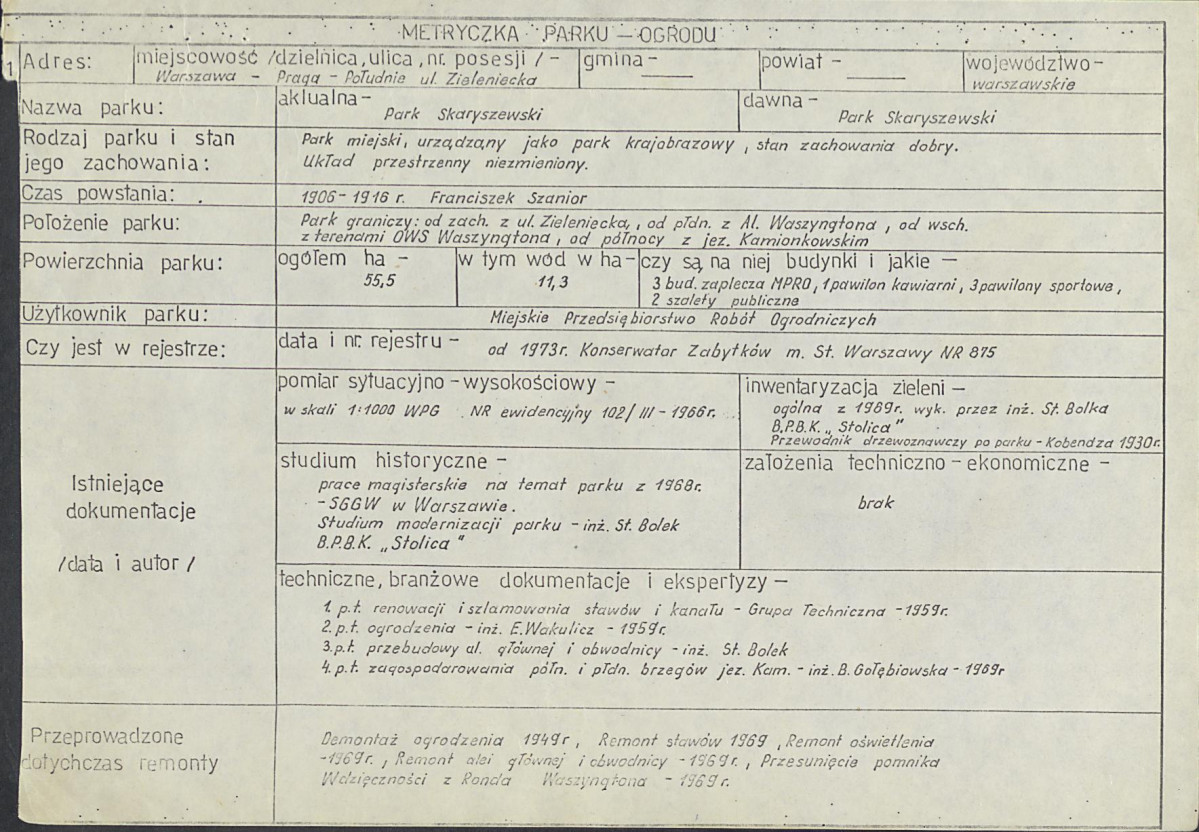 METRYCZKA PARKU — OGRODU
1 Adres:
miejscowość /dzielnica, ulica, nr. posesji / -
Warszawa - Praga - Południe ul. Zieleniecka
gmina-
powiat -
województwo-
warszawskie
Nazwa parku:
aktualna-
Park Skaryszewski
dawna -
Park Skaryszewski
Rodzaj parku i stan
jego zachowania:
Park miejski, urządzany jako park krajobrazowy, stan zachowania dobry.
Układ przestrzenny niezmieniony.
Czas powstania:
1906-1916 r. Franciszek Szanior
Położenie parku:
Park graniczy: od zach. z ul. Zieleniecką, od płdn. z Al. Waszyngtona, od wsch.
z terenami OWS Waszyngtona, od północy z jez. Kamionkowskim
Powierzchnia parku:
ogółem ha -
55,5
w tym wód w ha-
11,3
czy są na niej budynki i jakie —
3 bud. zaplecza MPRO, 1 pawilon kawiarni, 3 pawilony sportowe,
2 szalety publiczne
Użytkownik parku:
Miejskie Przedsiębiorstwo Robót Ogrodniczych
Czy jest w rejestrze:
data i nr. rejestru -
od 1973r. Konserwator Zabytków m. St. Warszawy NR 875
Istniejące
dokumentacje
/data i autor /
pomiar sytuacyjno - wysokościowy -
w skali 1:1000 WPG . NR ewidencyjny 102/ III - 1966r.
inwentaryzacja zieleni —
ogólna z 1989r. wyk. przez inż. St. Bolka
B.P.B.K. „Stolica"
Przewodnik drzewoznawczy po parku - Kobendza 1930r.
studium historyczne -
prace magisterskie na temat parku z 1968r.
- SGGW w Warszawie.
Studium modernizacji parku - inż. St. Bolek
B.P.B.K. „Stolica"
założenia techniczno - ekonomiczne -
brak
techniczne, branżowe dokumentacje i ekspertyzy —
1. p.t. renowacji i szlamowania stawów i kanału - Grupa Techniczna - 1959r.
2. p.t. ogrodzenia - inż. E. Wakulicz - 1959r.
3. p.t. przebudowy al. głównej i obwodnicy - inż. St. Bolek
4. p.t. zagospodarowania półn. i płdn. brzegów jez. Kam. - inż. B. Gołębiowska - 1969r
Przeprowadzone
dotychczas remonty
Demontaż ogrodzenia 1949r, Remont stawów 1969, Remont oświetlenia
-1969r., Remont alei głównej i obwodnicy - 1969r., Przesunięcie pomnika
Wdzięczności z Ronda Waszyngtona - 1969r.